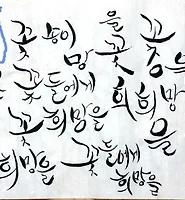 꽃 송이 을
망 꽃
꽃들에게 희 희망
꽃 희망을 을
희망을 꽃들에게
희망을